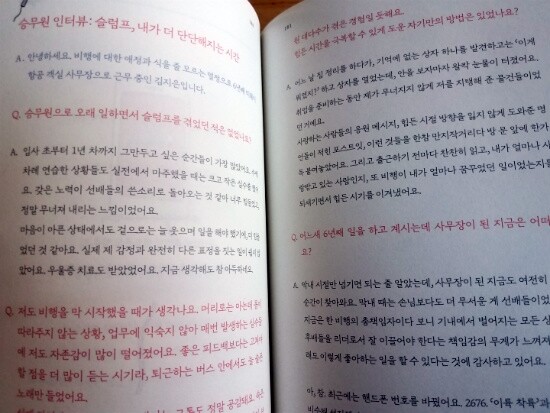 승무원 인터뷰: 슬럼프, 내가 더 단단해지는 시간
A. 안녕하세요. 비행에 대한 애정과 식을 줄 모르는 열정으로 6년째
항공 객실 사무장으로 근무 중인 김지은입니다.
Q. 승무원으로 오래 일하면서 슬럼프를 겪었던 적은 없었나요?
A. 입사 초부터 1년 차까지 그만두고 싶은 순간들이 가장 많았어요.
차례 연습한 상황들도 실전에서 마주했을 때는 크고 작은 실수를
요. 갖은 노력이 선배들의 쓴소리로 돌아오는 것 같아 너무
정말 무너져 내리는 느낌이었어요.
마음이 아픈 상태에서도 겉으로는 늘 웃으며 일을 해야 했기에,
었던 것 같아요. 실제 제 감정과 완전히 다른 표정을 짓는 일이 쉽지
았어요. 우울증 치료도 받았었어요. 지금 생각해도 참 아득하네요.
Q. 저도 비행을 막 시작했을 때가 생각나요. 머리로는 아는데 몸이
따라주지 않는 상황, 업무에 익숙지 않아 매번 발생하는 실수들
에 저도 자존감이 많이 떨어졌어요. 좋은 피드백보다는 고쳐야
할 점을 더 많이 듣는 시기라, 퇴근하는 버스 안에서도 늘 슬픈
노래만 들었어요.
정말 공감돼요.
원 대다수가 겪은 경험일 듯해요.
힘든 시간을 극복할 수 있게 도운 자기만의 방법은 있었나요?
A. 어느 날 짐 정리를 하다가, 기억에 없는 상자 하나를 발견하고는 '이게
뭐였지?' 하고 상자를 열었는데, 안을 보자마자 왈칵 눈물이 터졌어요.
취업을 준비하는 동안 제가 무너지지 않게 저를 지탱해 준 물건들이었
던 거예요.
사랑하는 사람들의 응원 메시지, 힘든 시절 방향을 잃지 않게 도와준 명
언들이 적힌 포스트잇, 이런 것들을 한참 만지작거리다 방 문 앞에 한가
득 붙여놓았어요. 그리고 출근하기 전마다 찬찬히 읽고, 내가 얼마나 사
랑받고 있는 사람인지, 또 비행이 내가 얼마나 꿈꾸었던 일이었는지를
되새기면서 힘든 시기를 이겨냈어요.
Q. 어느새 6년째 일을 하고 계시는데 사무장이 된 지금은 어떠
요?
A. 막내 시절만 넘기면 되는 줄 알았는데, 사무장이 된 지금도 여전히
순간이 찾아와요. 막내 때는 손님보다도 더 무서운 게 선배들이었
지금은 한 비행의 총책임자이다 보니 기내에서 벌어지는 모든 상
후배들을 리더로서 잘 이끌어야 한다는 책임감의 무게가 느껴져
래도 이렇게 좋아하는 일을 할 수 있다는 것에 감사하고 있어요.
아, 참. 최근에는 핸드폰 번호를 바꿨어요. 2676. '이륙 착륙'과